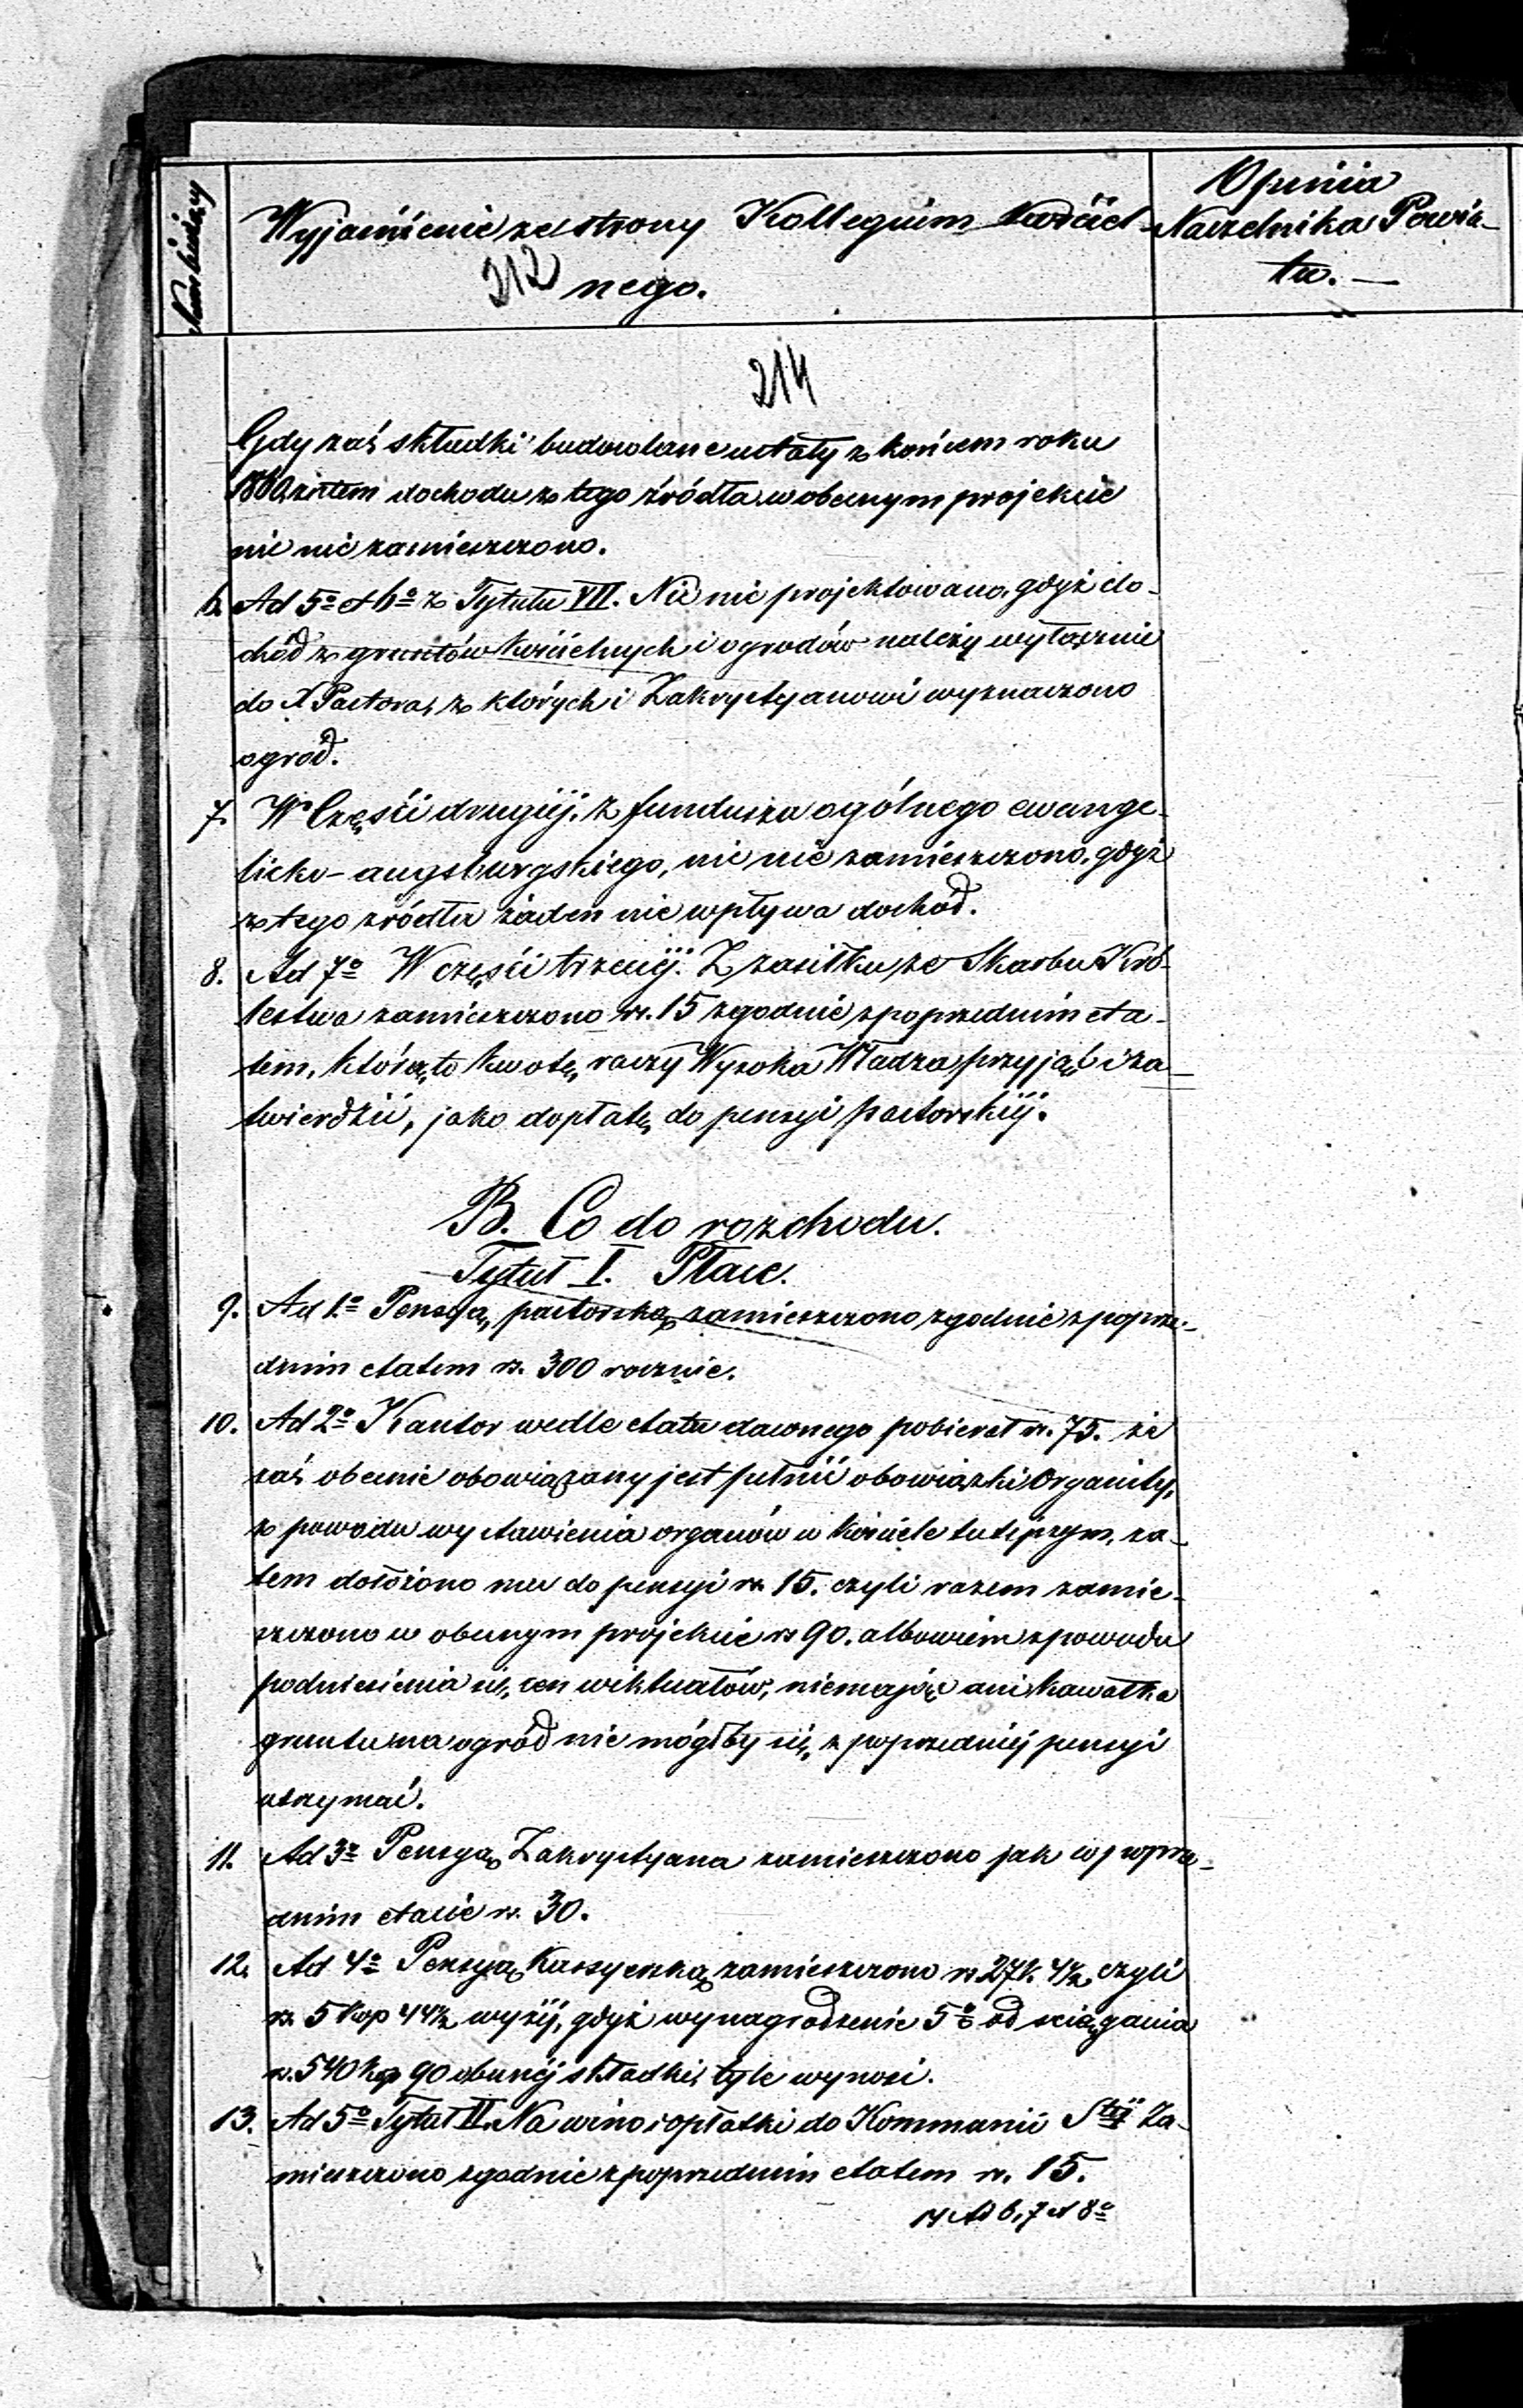 Num bieżący
Wyjaśnienie ze strony Kollegium Kościel-
nego.
212
Opinia
Naczelnika Powia-
tu. —
214
Gdy zaś składki budowlane ustały z końcem roku
1860, zatem dochodu z tego źródła w obecnym projekcie
nic nie zamieszczono.
6. Ad 5o et 6o z Tytułu VII. Nic nie projektowano, gdyż do-
chód z gruntów kościelnych i ogrodów należy wyłącznie
do X Pastora, z których i Zakrystyanowi wyznaczono
ogród.
7. W Części drugiéj. Z funduszu ogólnego ewange-
licko-augsburgskiego, nic nie zamieszczono, gdyż
z tego źródła żaden nie wpływa dochód.
8. Ad 7o W części trzeciéj. Z zasiłku ze Skarbu Kró-
lestwa zamieszczono rs. 15 zgodnie z poprzednim eta-
tem, którą to kwotę raczy Wysoka Władza przyjąć i za-
twierdzić, jako dopłatę do pensyi pastorskiéj.
B. Co do rozchodu.
Tytuł I. Płace.
9. Ad 1o Pensyą pastorską zamieszczono zgodnie z poprze-
dnim etatem rs. 300 rocznie.
10. Ad 2o Kantor wedle etatu dawnego pobierał rs. 75. że
zaś obecnie obowiązany jest pełnić obowiązki Organisty,
z powodu wystawienia organów w kościele tutéjszym, za-
tem dołożono mu do pensyi rs. 15. czyli razem zamie-
szczono w obecnym projekcie rs 90. albowiem z powodu
podniesienia się cen wiktuałów, niemając ani kawałka
gruntu na ogród nie mógłby się z poprzedniéj pensyi
utrzymać.
11. Ad 3o Pensyą Zakrystyana zamieszczono jak w poprze-
dnim etacie rs. 30.
12. Ad 4o Pensyą Kassyerską zamieszczono rs 27 k. 4½ czyli
rs. 5 kop 44½ wyżéj, gdyż wynagrodzenie 5% od ściągania
rs. 540 kop 90 obecnéj składki, tyle wynosi.
13. Ad 5o Tytuł II. Na wino i opłatki do Kommunii Stéj Za-
mieszczono zgodnie z poprzednim etatem rs. 15.
14 Ad 6, 7 et 8o